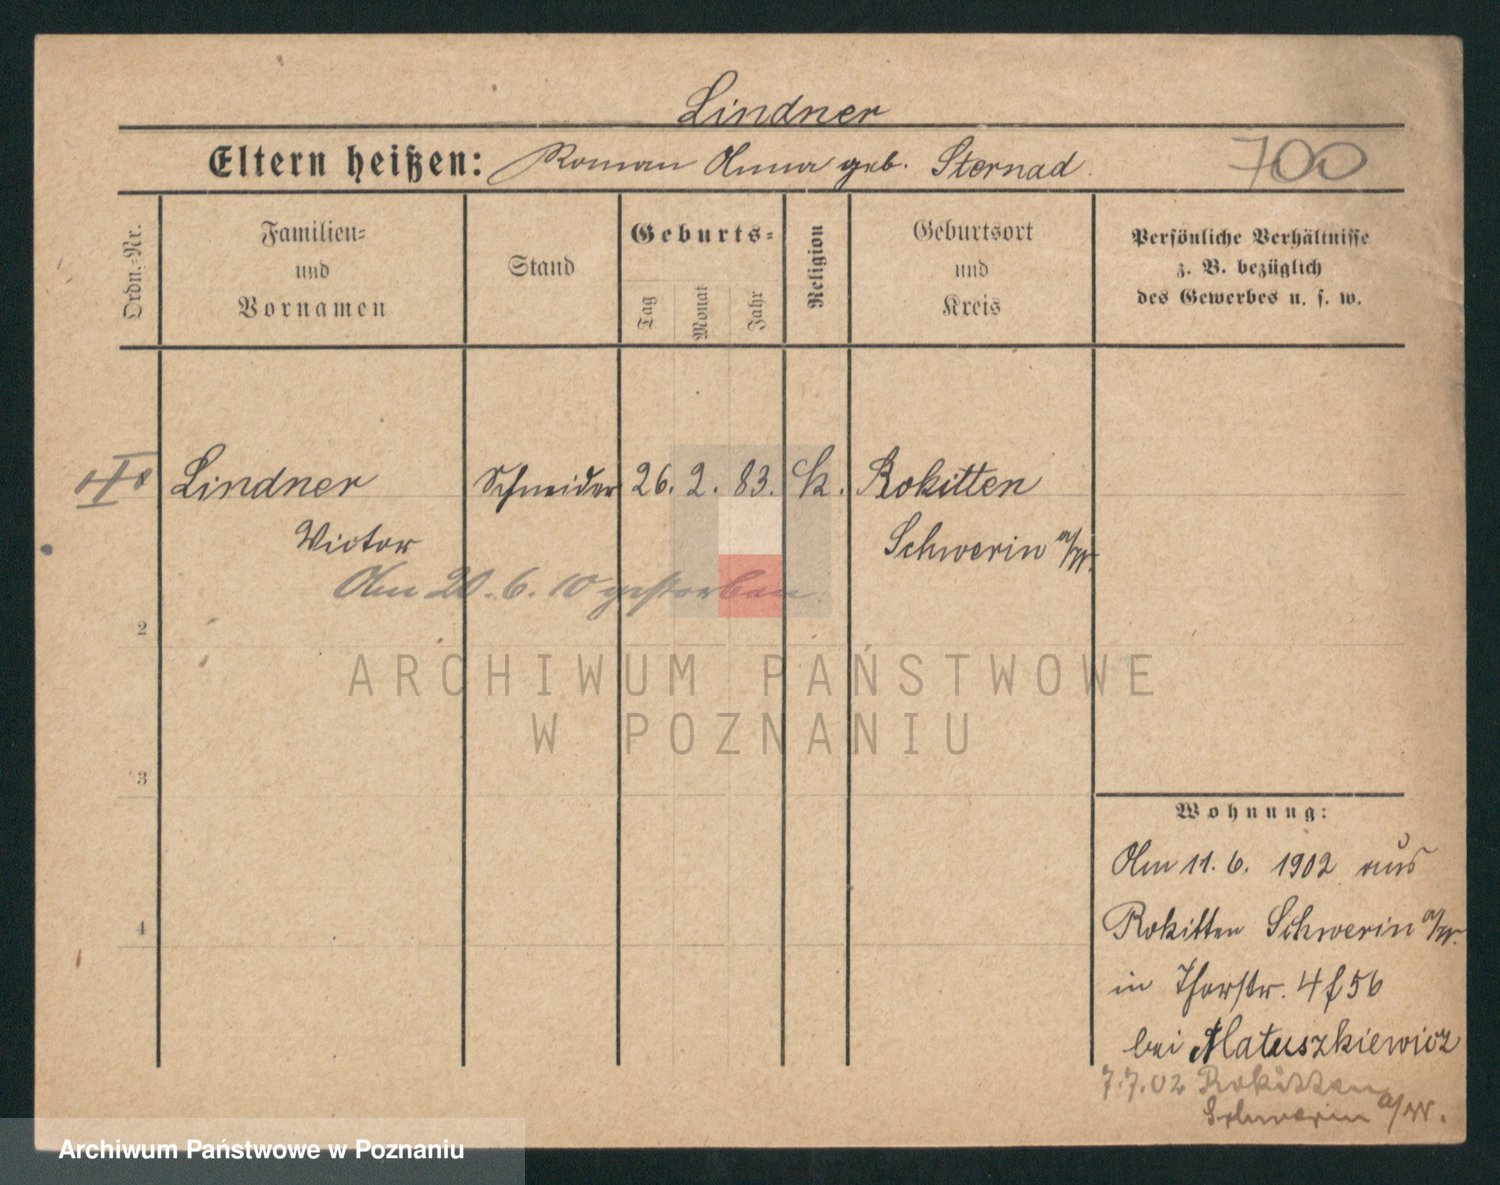 Lindner
Eltern heißen: Roman Anna geb. Sternad.
700
Ordn.-Nr.
Familien-
und
Vornamen
Stand
Geburts-
Tag
Monat
Jahr
Religion
Geburtsort
und
Kreis
Persönliche Verhältnisse
z. B. bezüglich
des Gewerbes u. s. w.
Lindner Schneider 26. 2. 83. k. Rokitten
Victor Schwerin a/W.
Am 20. 6. 10 gestorben.
2
3
4
ARCHIWUM PAŃSTWOWE
W POZNANIU
Wohnung:
Am 11. 6. 1902 aus
Rokitten Schwerin a/W.
in Thorstr. 4 f 56
bei Matuszkiewicz
7.7.02 Rokitten
Schwerin a/W.
Archiwum Państwowe w Poznaniu